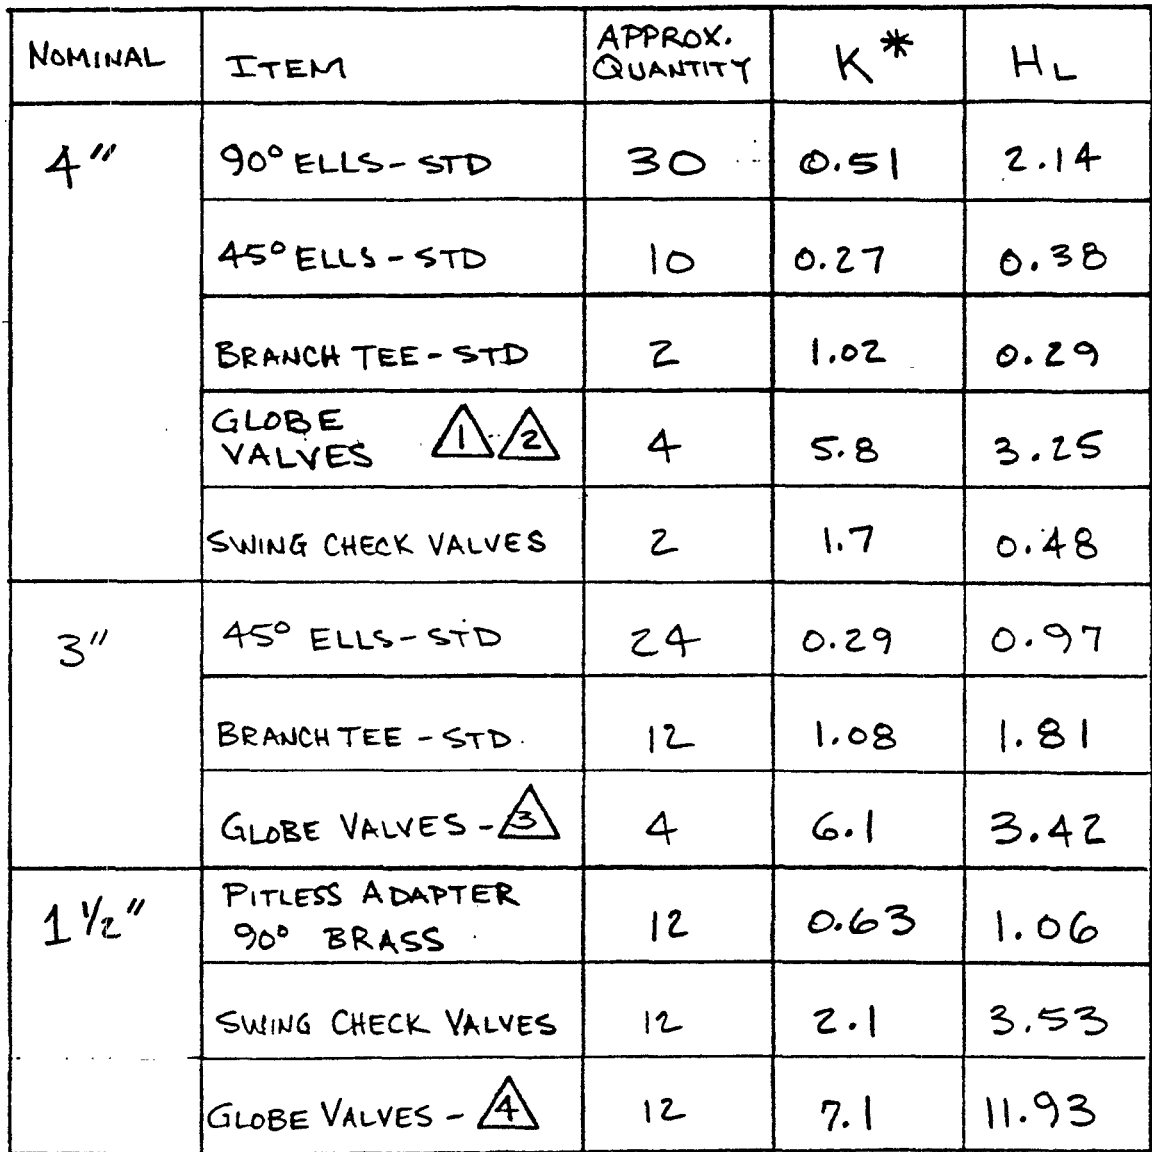 NOMINAL ITEM APPROX. QUANTITY K* HL
4" 90° ELLS-STD 30 0.51 2.14
45° ELLS-STD 10 0.27 0.38
BRANCH TEE-STD 2 1.02 0.29
GLOBE VALVES 1 2 4 5.8 3.25
SWING CHECK VALVES 2 1.7 0.48
3" 45° ELLS-STD 24 0.29 0.97
BRANCH TEE-STD. 12 1.08 1.81
GLOBE VALVES-3 4 6.1 3.42
1 1/2" PITLESS ADAPTER 90° BRASS 12 0.63 1.06
SWING CHECK VALVES 12 2.1 3.53
GLOBE VALVES-4 12 7.1 11.93